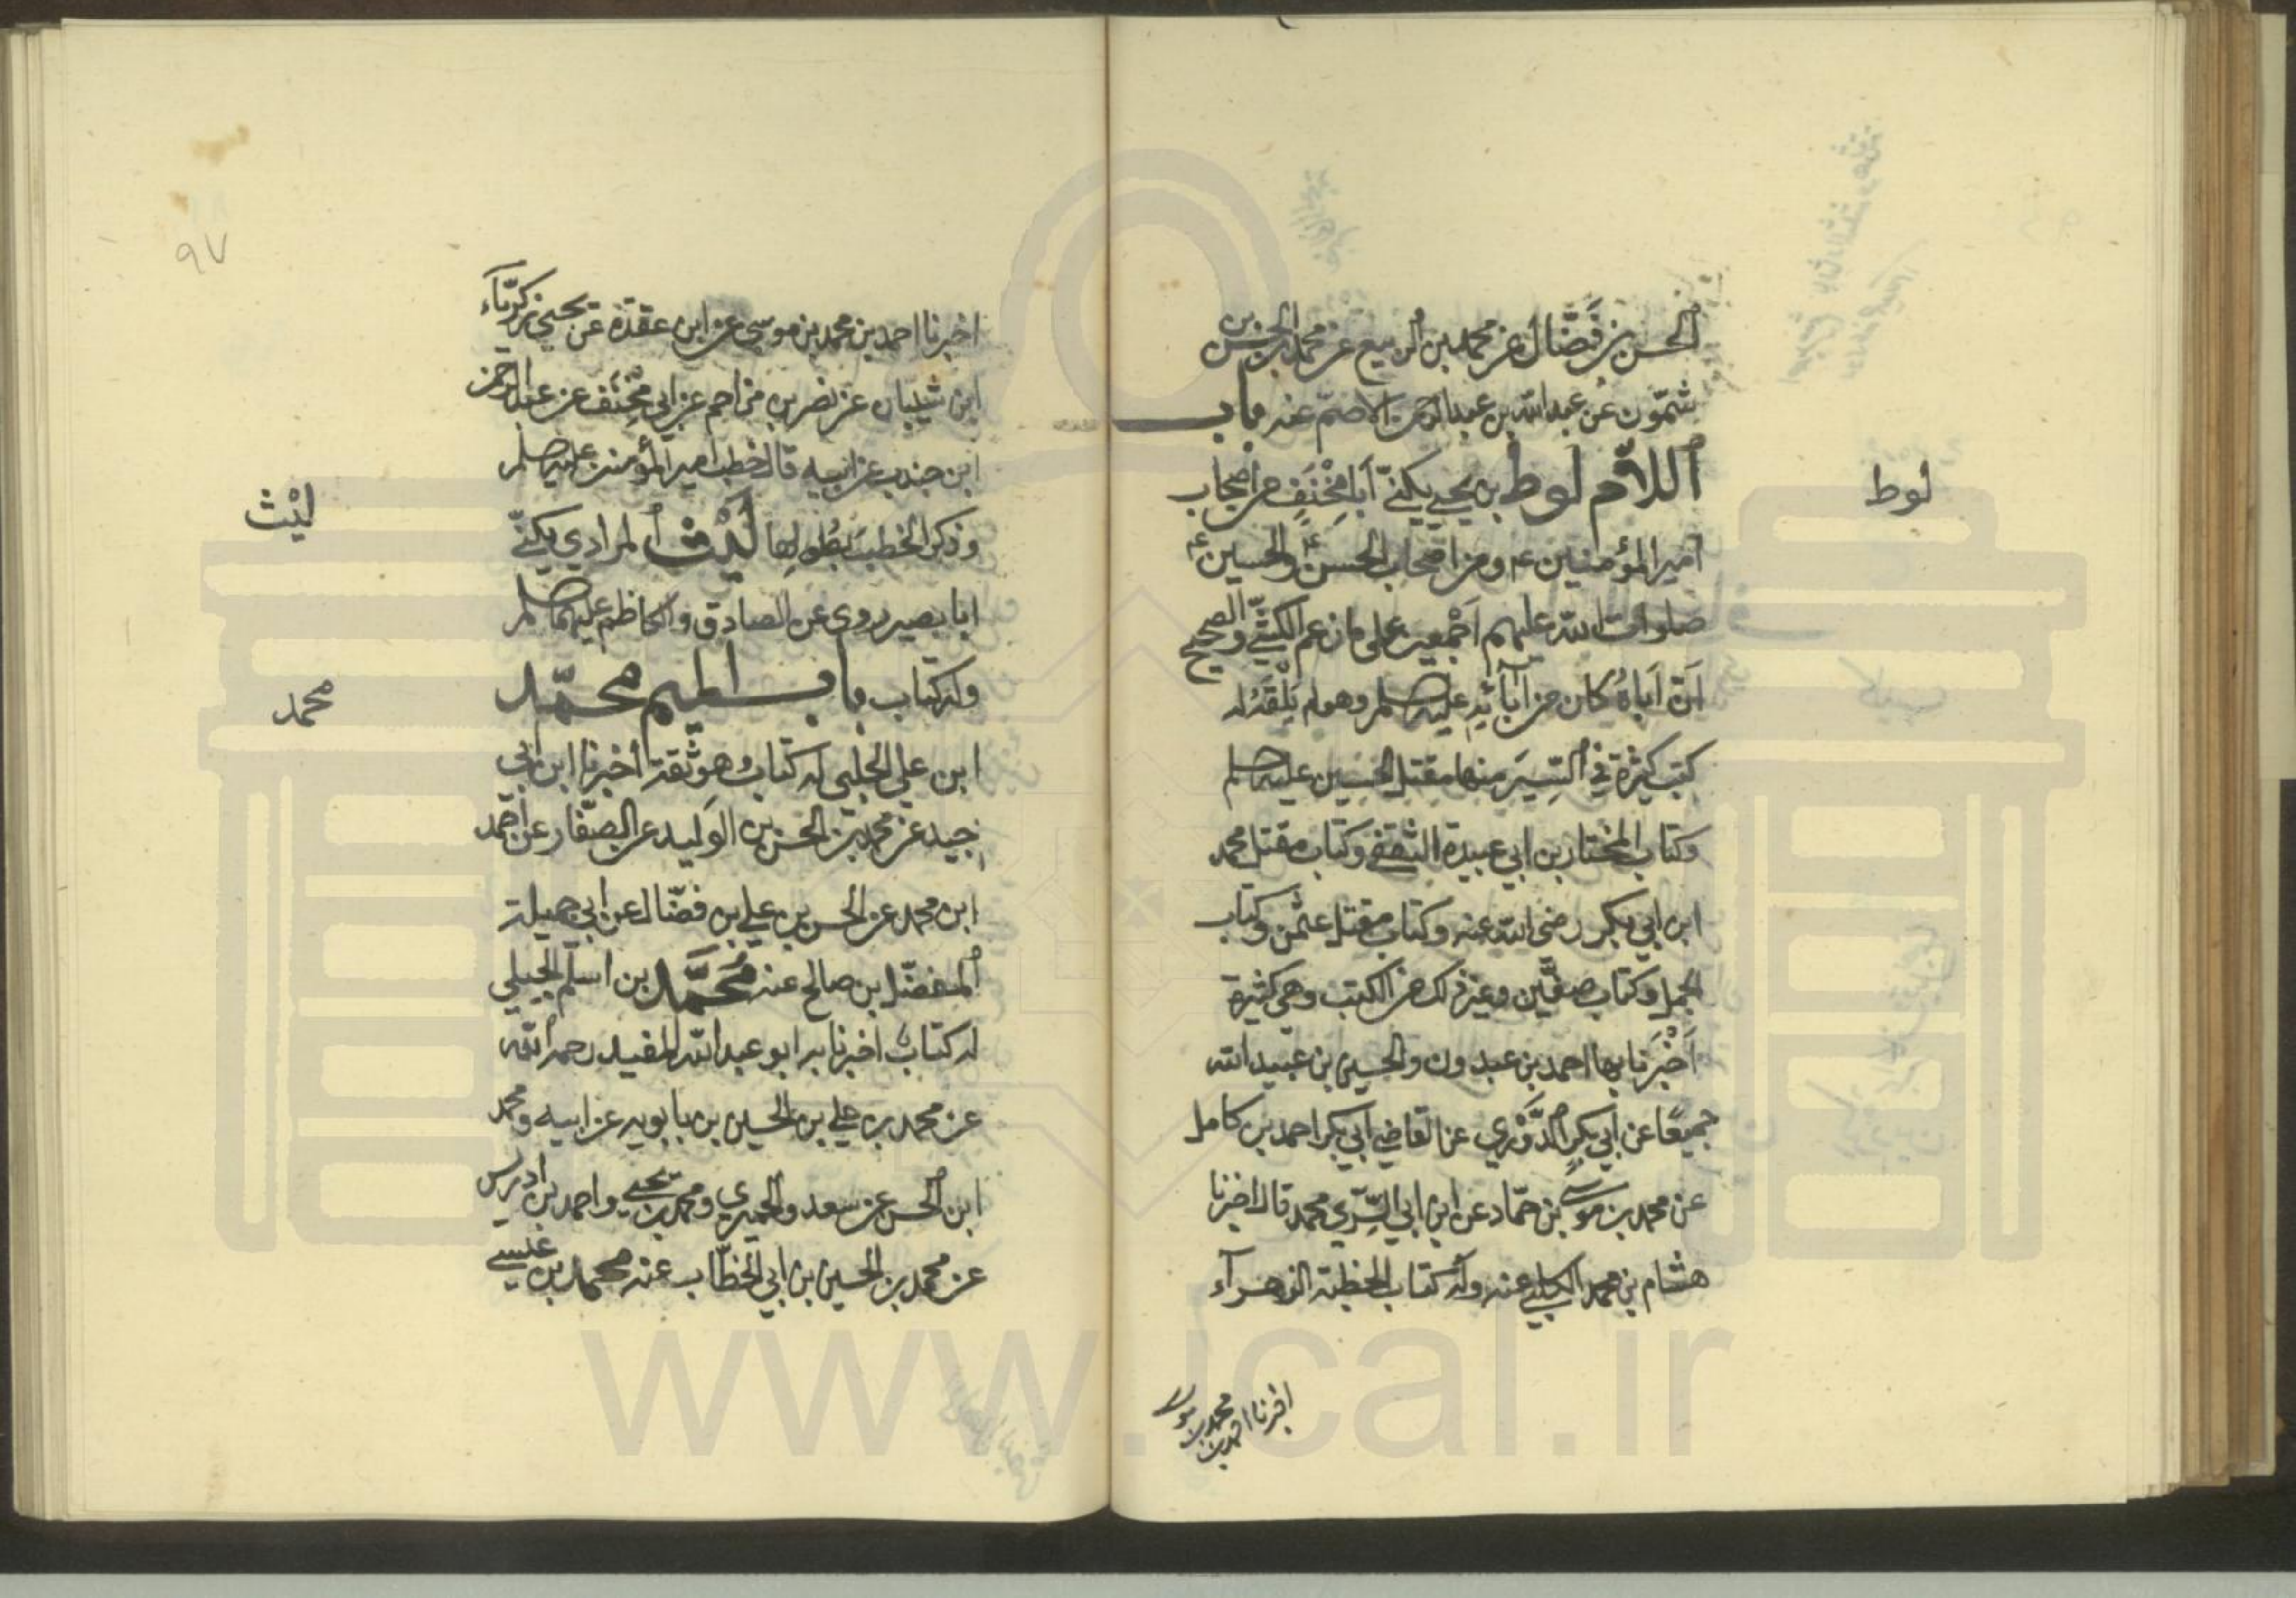 الحسن بن فَضَّال عن محمد بن الربيع عن محمد بن الحسن بن
شمّون عن عبد الله بن عبد الرحمن الاصمّ عنه باب
اللاّم لوط بن يحيى يكنّى أبا مِخْنَفٍ من أصحاب
أمير المؤمنين ع ومن اصحاب الحسن ع والحسين ع
صلوات الله عليهم أجْمعين على ما زعم الكشّي والصحيح
أنّ أباهُ كان من أصحابه عليه السلم وهو لم يَلْقَهُ له
كتب كثيرة في السِّيَر منها مقتل الحسين عليه السلم
وكتاب المختار بن ابي عبيدة الثقفي وكتاب مقتل محمد
ابن ابي بكر رضى الله عنه وكتاب مقتل عثمن وكتاب
الجمل وكتاب صفّين وغير ذلك من الكتب وهي كثيرة
أَخْبَرَنا بها احمد بن عبدون والحسين بن عبيد الله
جميعًا عن ابي بكرٍ الدَّوْري عن القاضي ابي بكر احمد بن كامل
عن محمد بن موسى بن حمّاد عن ابن ابي السِّرّي محمد قال اخبرنا
هشام بن محمد الكلبي عنه وله كتاب الخطبة الزهرآء
اخبرنا احمد بن
محمد بن موسى
لوط
٩٧
اخبرنا احمد بن محمد بن موسى عن ابن عقدة عن يحيى بن زكريّاء
ابن شيبان عن نصر بن مزاحم عن ابي مِخْنَف عن عبد الرحمن
ابن جندب عن ابيه قال خطب امير المؤمنين عليه السلم
وذكر الخطبة بطولها لَيْث المرادي يكنّى
ابا بصير روى عن الصادق والكاظم عليهما السلم
وله كتاب باب الميم محمّد
ابن علي الحلبي له كتاب وهو ثقة أخبرنا ابن ابي
جيد عن محمد بن الحسن بن الوليد عن الصفّار عن احمد
ابن محمد عن الحسن بن علي بن فضّال عن ابي جميلة
المفضّل بن صالح عنه مُحَمَّد بن اسلم الجبلي
له كتاب اخبرنا به ابو عبد الله المفيد رحمه الله
عن محمد بن علي بن الحسين بن بابويه عن ابيه ومحمد
ابن الحسن عن سعد والحميري ومحمد بن يحيى واحمد بن ادريس
عن محمد بن الحسين بن ابي الخطّاب عنه محمد بن عيسى
ليْث
محمد
www.ical.ir